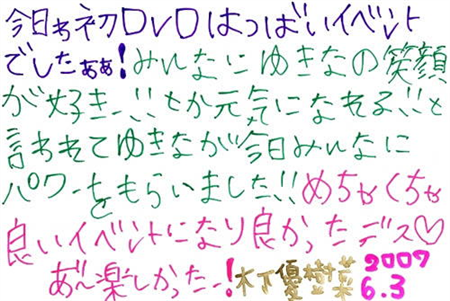 今日ゎ初DVDはつばいイベント
でしたぁぁ!みんなにゆきなの笑顔
が好きー!!とか元気になれる!!と
言われてゆきなが今日みんなに
パワーをもらいました!!めちゃくちゃ
良いイベントになり良かったデス♡
あ〜楽しかったー!木下優樹菜 2007 6.3